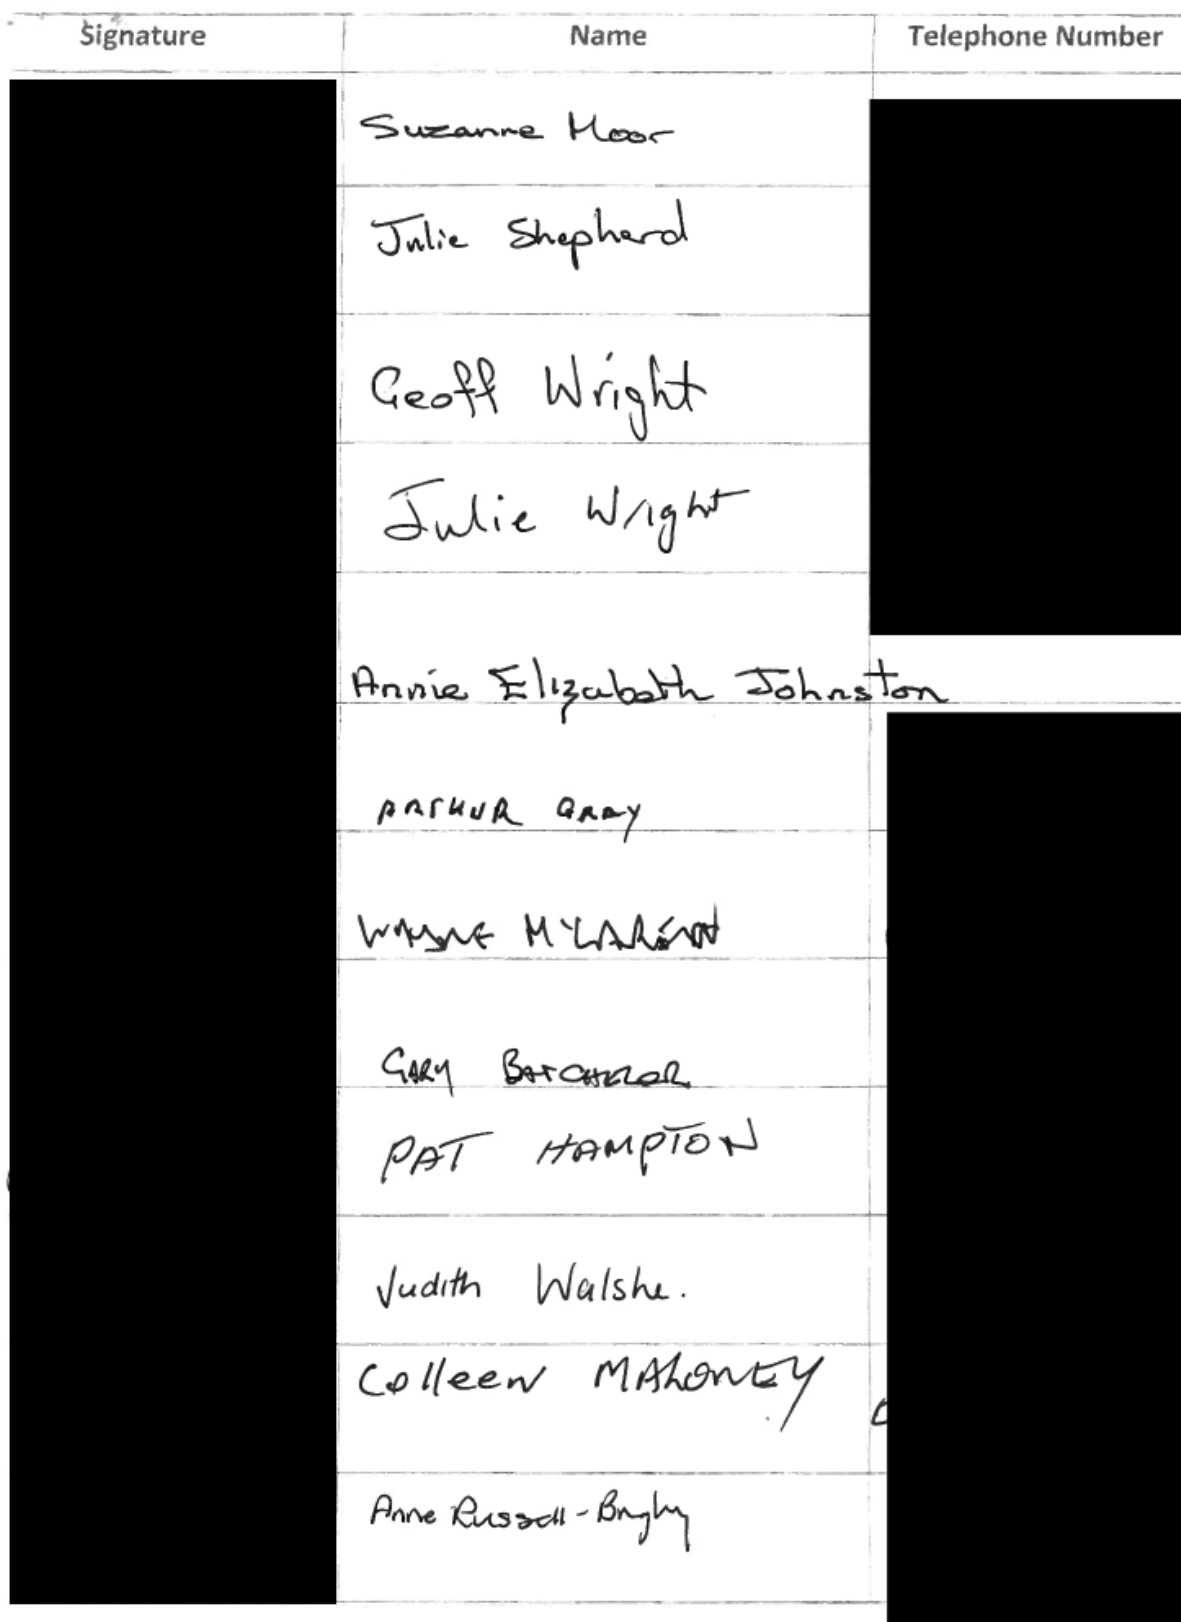 Signature Name Telephone Number
Suzanne Moor
Julie Shepherd
Geoff Wright
Julie Wright
Annie Elizabeth Johnston
ARTHUR GRAY
WAYNE
GARY BATCHELOR
PAT HAMPTON
Judith Walshe.
Colleen MAHONEY
Anne Russell-